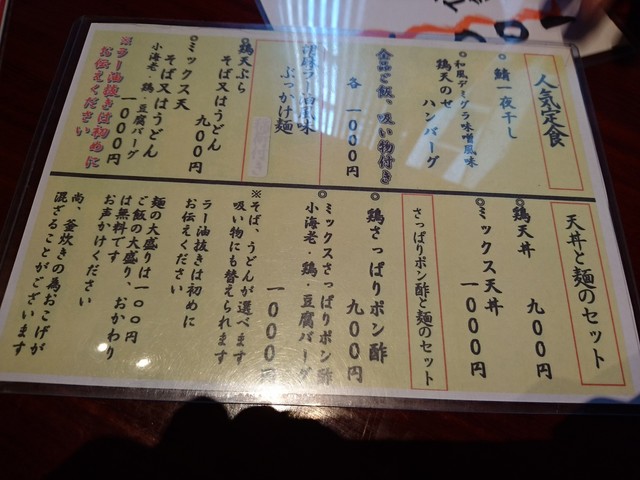 人気定食
◎鯖一夜干し
◎和風デミグラ味噌風味
鶏天のせ ハンバーグ
全品ご飯、吸い物付き
各 1000円
ラー油風味
ぶっかけ麺
◎鶏天ぷら
そば又はうどん
900円
◎ミックス天
そば又はうどん
小海老・鶏・豆腐バーグ
1000円
※ラー油抜きは初めに
お伝えください
天丼と麺のセット
◎鶏天丼
900円
◎ミックス天丼
1000円
さっぱりポン酢と麺のセット
◎鶏さっぱりポン酢
900円
◎ミックスさっぱりポン酢
小海老・鶏・豆腐バーグ
1000円
※そば、うどんが選べます
吸い物にも替えられます
ラー油抜きは初めに
お伝えください
麺の大盛りは一〇〇円
ご飯の大盛り、おかわり
は無料です
お声かけください
尚、釜炊きの為おこげが
混ざることがございます